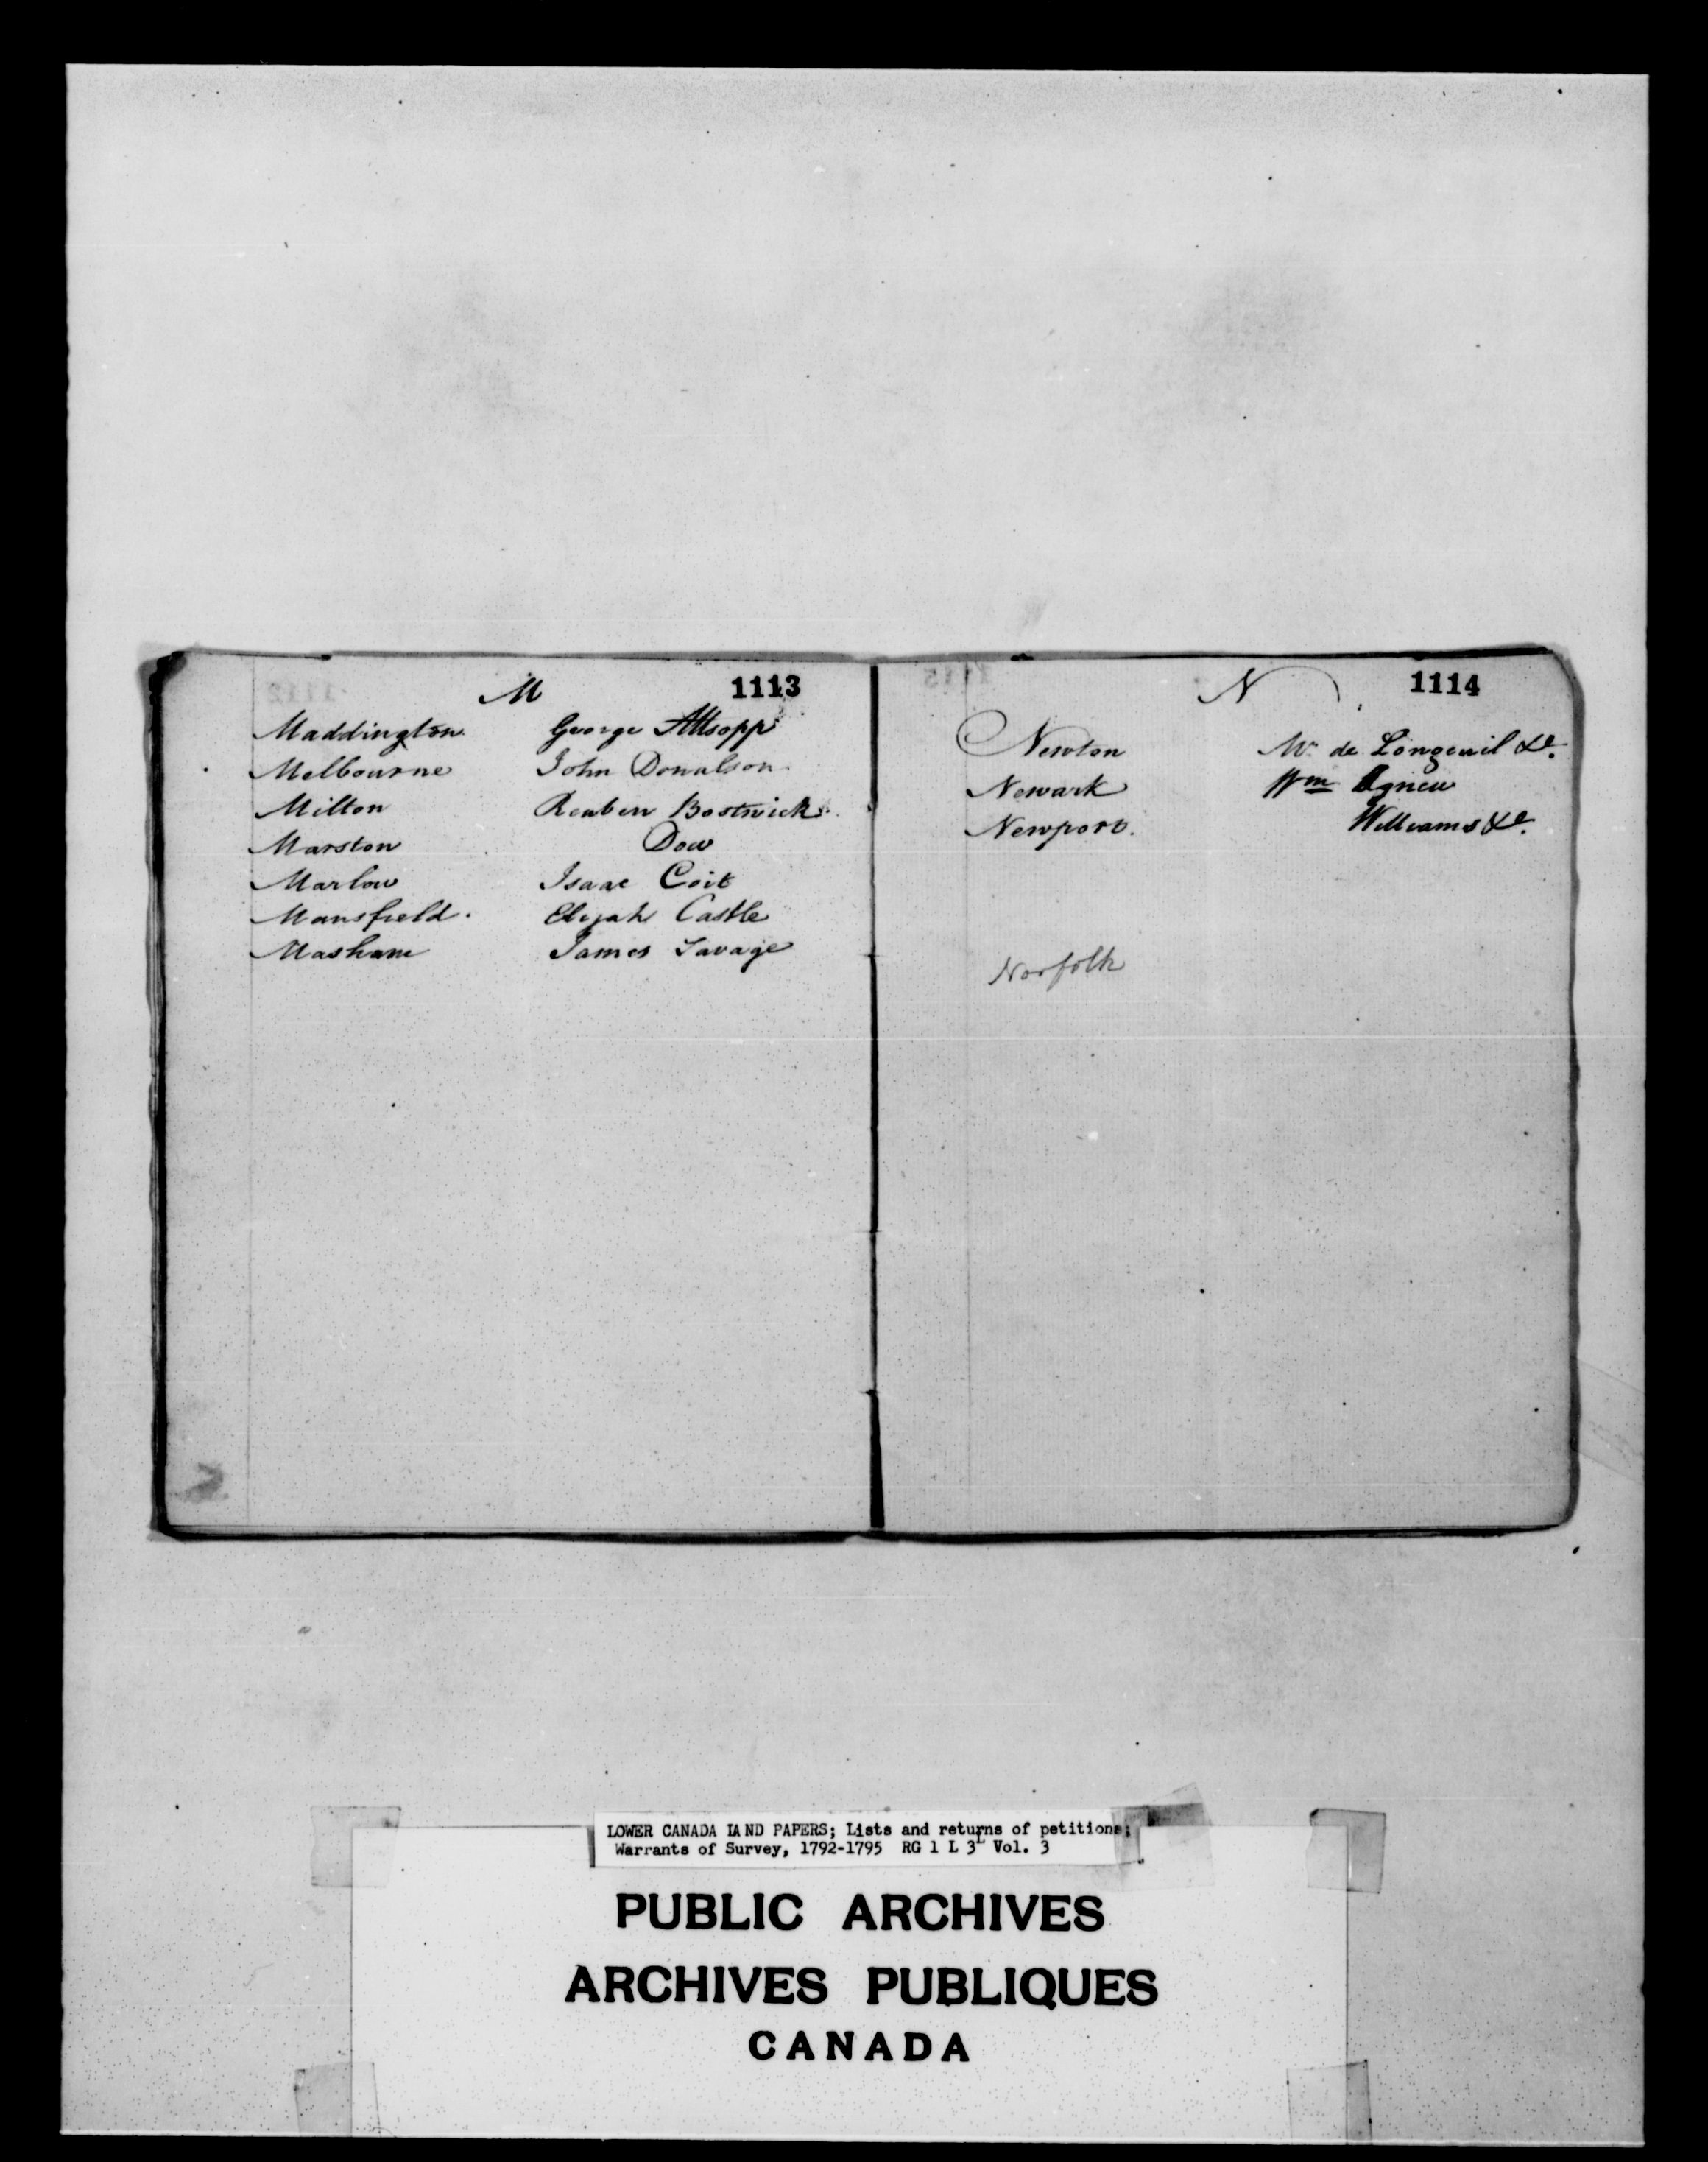 M 1113
Maddington George Allsopp
Melbourne John Donalson
Milton Reuben Bostwick
Marston Dow
Marlow Isaac Coit
Mansfield. Elijah Castle
Masham James Savage
N 1114
Newton Mr. de Longeuil &c.
Newark Wm Agnew
Newport. Williams &c.
Norfolk
LOWER CANADA LAND PAPERS; Lists and returns of petitions;
Warrants of Survey, 1792-1795 RG 1 L 3L Vol. 3
PUBLIC ARCHIVES
ARCHIVES PUBLIQUES
CANADA